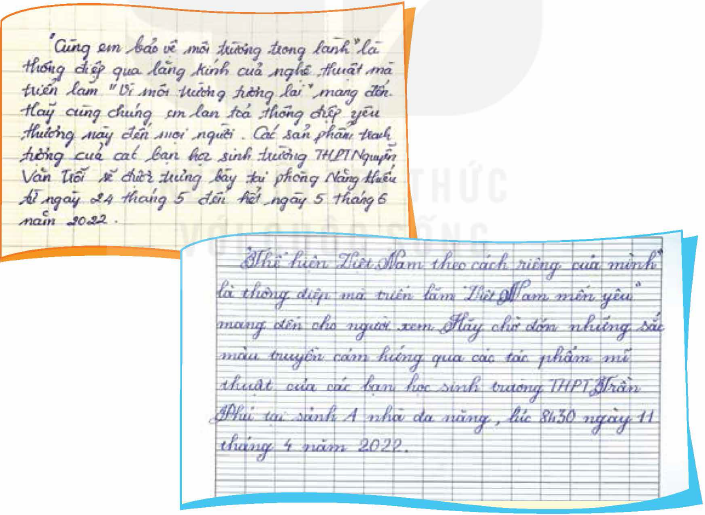 "Cùng em bảo vệ môi trường trong lành" là
thông điệp qua lăng kính của nghệ thuật mà
triển lãm "Vì môi trường tương lai" mang đến.
Hãy cùng chúng em lan toả thông điệp yêu
thương này đến mọi người. Các sản phẩm tranh
tường của các bạn học sinh trường THPT Nguyễn
Văn Trỗi sẽ được trưng bày tại phòng Năng khiếu
từ ngày 24 tháng 5 đến hết ngày 5 tháng 6
năm 2022.
THỨC
VỚI CUỘC SỐNG
"Thể hiện Việt Nam theo cách riêng của mình"
là thông điệp mà triển lãm "Việt Nam mến yêu"
mang đến cho người xem. Hãy chờ đón những sắc
màu truyền cảm hứng qua các tác phẩm mĩ
thuật của các bạn học sinh trường THPT Trần
Phú tại sảnh A nhà đa năng, lúc 8h30 ngày 11
tháng 4 năm 2022.